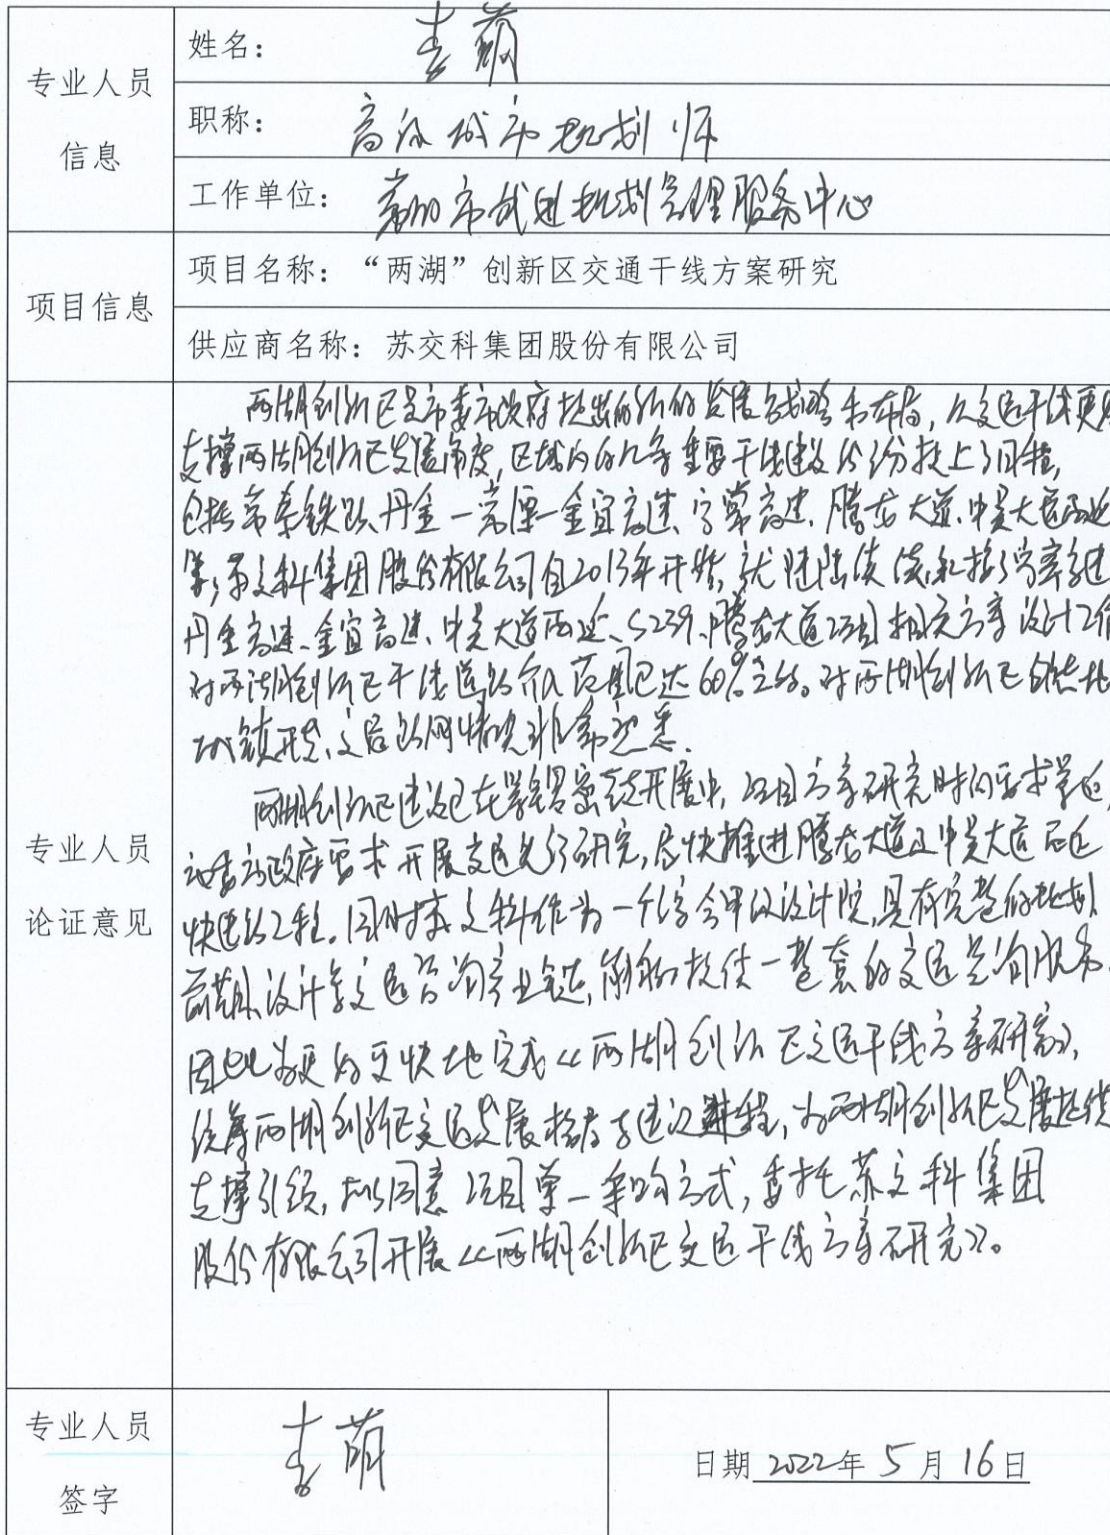 专业人员
信息
姓名： 李萌
职称： 高级城市规划师
工作单位： 常州市武进规划管理服务中心
项目信息
项目名称：“两湖”创新区交通干线方案研究
供应商名称：苏交科集团股份有限公司
专业人员
论证意见
两湖创新区是市委市政府提出的新的发展战略和布局，从交通干线更好
支撑两湖创新区发展角度，区域内的几条重要干线建设部分提上了日程，
包括常泰铁路、丹金-常溧-金宜高速、宁常高速、腾龙大道、中吴大道西延
等，苏交科集团股份有限公司自2013年开始，就陆陆续续承接了
丹金高速、金宜高速、中吴大道西延、S239、腾龙大道项目相关方案设计工作
对两湖创新区干线道路介入范围已达60%左右。对两湖创新区
城镇开发、交通路网情况非常熟悉。
两湖创新区建设已在紧锣密鼓开展中，项目方案研究时间要求紧迫，
市委市政府要求开展交通先行研究，尽快推进腾龙大道及中吴大道西延
快速路工程。同时苏交科作为一个综合甲级设计院，具有完整的规划
前期、设计等交通咨询产业链，能够提供一整套的交通咨询服务。
因此为更好更快地完成《两湖创新区交通干线方案研究》，
统筹两湖创新区交通发展格局与建设进程，为两湖创新区发展提供
支撑引领，拟同意项目单一采购方式，委托苏交科集团
股份有限公司开展《两湖创新区交通干线方案研究》。
专业人员
签字
李萌
日期 2022年 5月 16日